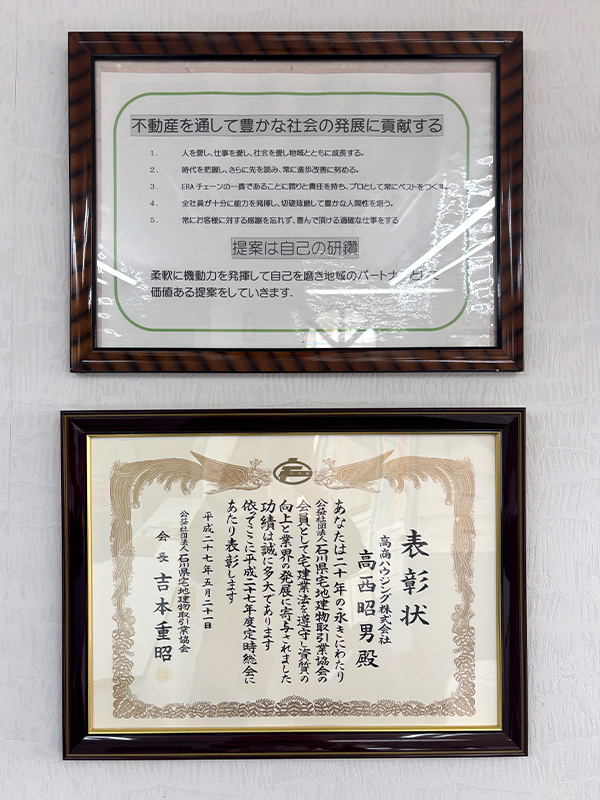 不動産を通して豊かな社会の発展に貢献する
1. 人を愛し、仕事を愛し、社会を愛し地域とともに成長する。
2. 時代を把握し、さらに先を読み、常に進歩改善に努める。
3. ERAチェーンの一員であることに誇りと責任を持ち、プロとして常にベストをつくす。
4. 全社員が十分に能力を発揮し、切磋琢磨して豊かな人間性を培う。
5. 常にお客様に対する感謝を忘れず、喜んで頂ける適確な仕事をする
提案は自己の研鑽
柔軟に機動力を発揮して自己を磨き地域のパートナーとして
価値ある提案をしていきます.
表彰状
高商ハウジング株式会社
高西昭男殿
あなたは二十年の永きにわたり
公益社団法人石川県宅地建物取引業協会の
会員として宅建業法を遵守し資質の
向上と業界の発展に寄与されました
功績は誠に多大であります
依つてここに平成二十七年度定時総会に
あたり表彰します
平成二十七年五月二十一日
公益社団法人石川県宅地建物取引業協会
会長 吉本重昭